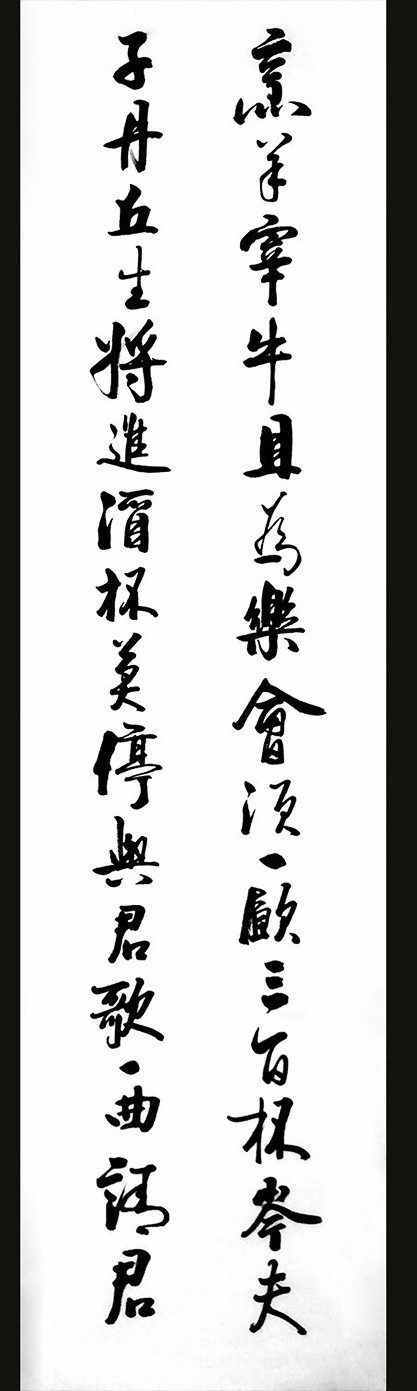 烹羊宰牛且為樂會須一飲三百杯岑夫
子丹丘生將進酒杯莫停與君歌一曲請君